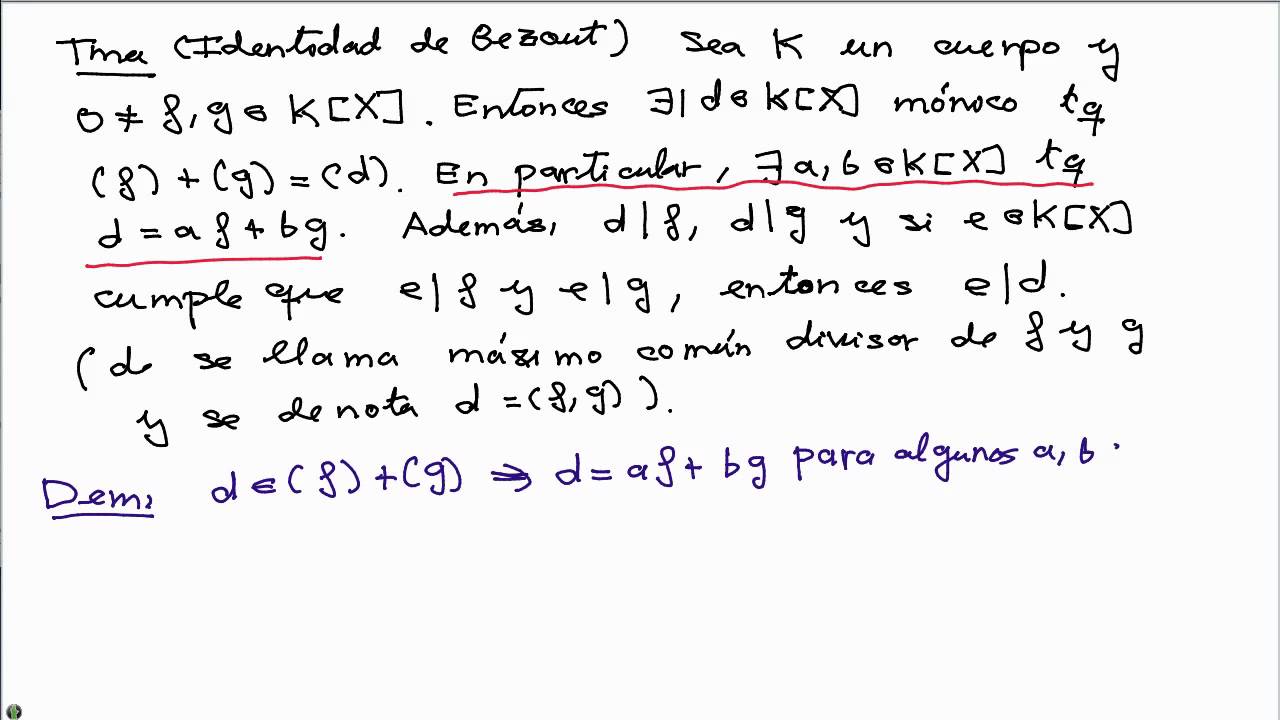 Tma (Identidad de Bezout) Sea K un cuerpo y
0 ≠ f, g ∈ K[X]. Entonces ∃| d ∈ K[X] mónico tq
(f) + (g) = (d). En particular, ∃ a, b ∈ K[X] tq
d = a f + b g. Además, d | f, d | g y si e ∈ K[X]
cumple que e | f y e | g, entonces e | d.
(d se llama máximo común divisor de f y g
y se denota d = (f, g)).
Dem: d ∈ (f) + (g) ⇒ d = a f + b g para algunos a, b